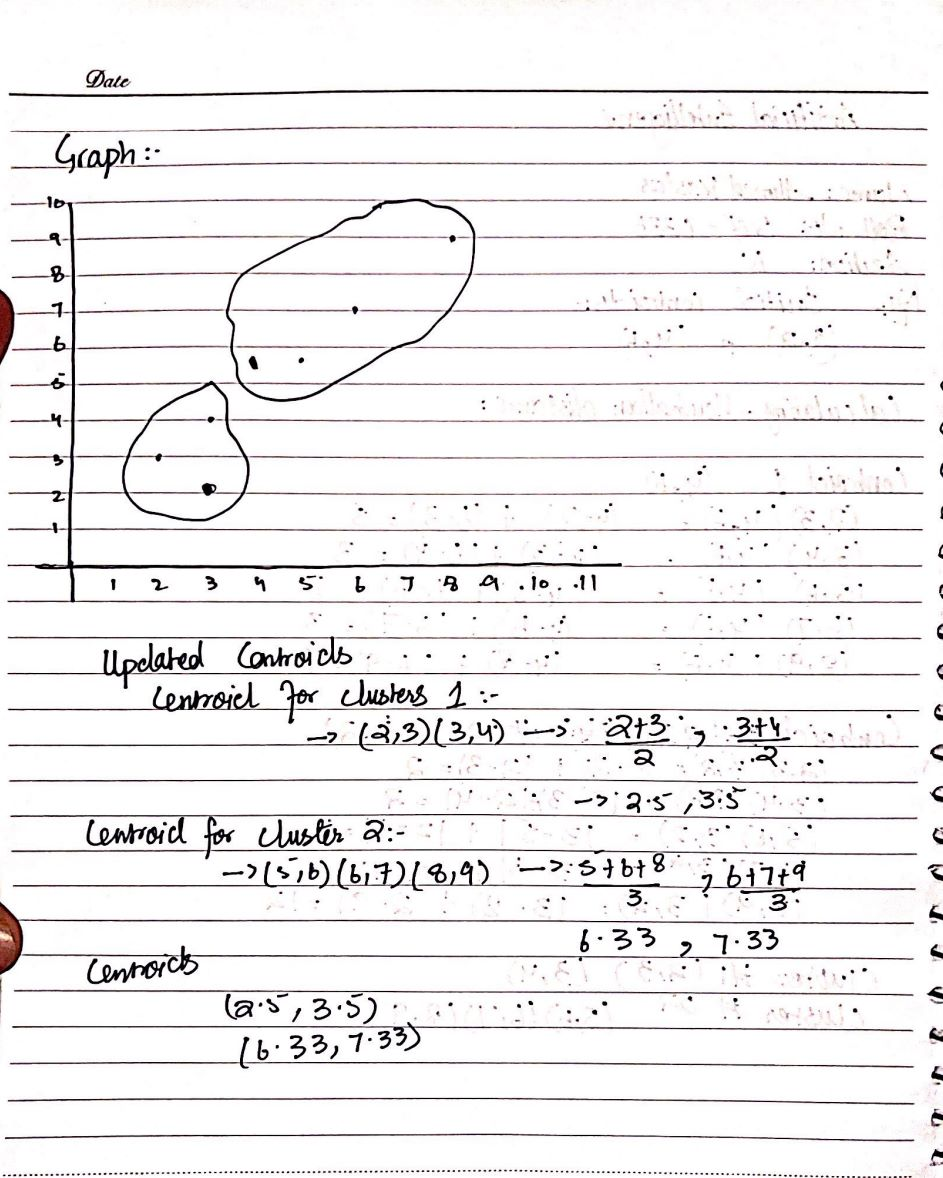 Date
Graph :-
10
9
8
7
6
5
4
3
2
1
1 2 3 4 5 6 7 8 9 10 11
Updated Centroids
Centroid for clusters 1 :-
→ (2,3)(3,4) → 2+3/2 , 3+4/2
→ 2.5 , 3.5
Centroid for cluster 2:-
→ (5,6)(6,7)(8,9) → 5+6+8/3 , 6+7+9/3
6.33 , 7.33
Centroids
(2.5, 3.5)
(6.33, 7.33)